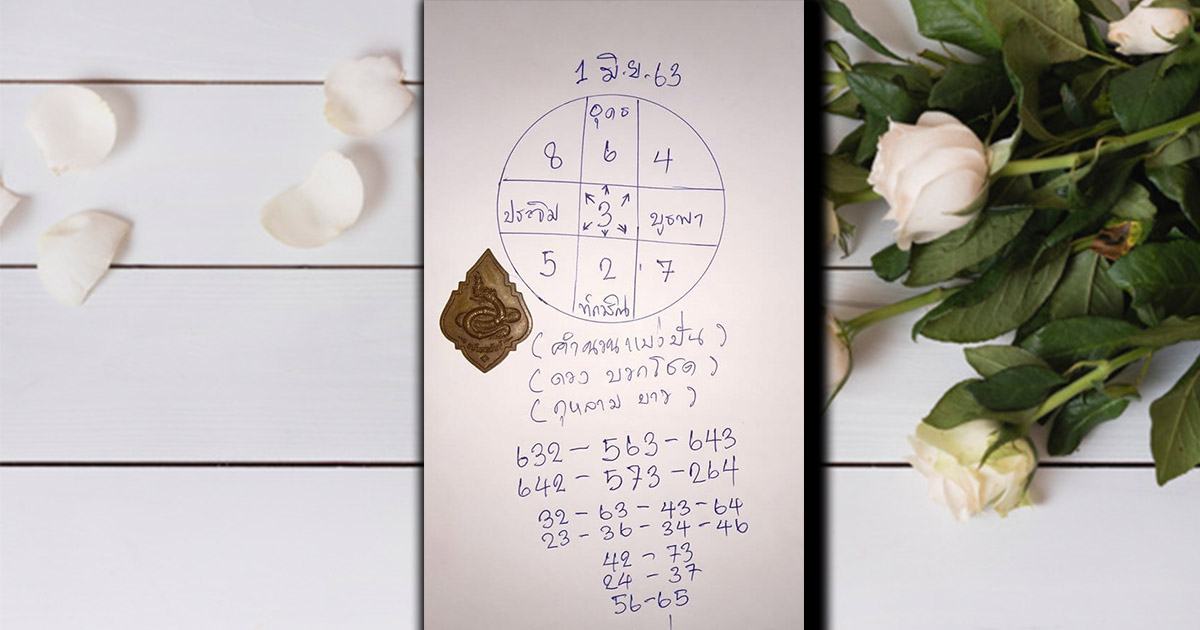 1 มิ.ย. 63
อุดร
8 6 4
ประจิม 3 บูรพา
5 2 7
ทักษิณ
(คำนวนแม่งปั่น)
(ดวง บวกโชค)
(กุหลาบ ขาว)
632 - 563 - 643
642 - 573 - 264
32 - 63 - 43 - 64
23 - 36 - 34 - 46
42 - 73
24 - 37
56-65